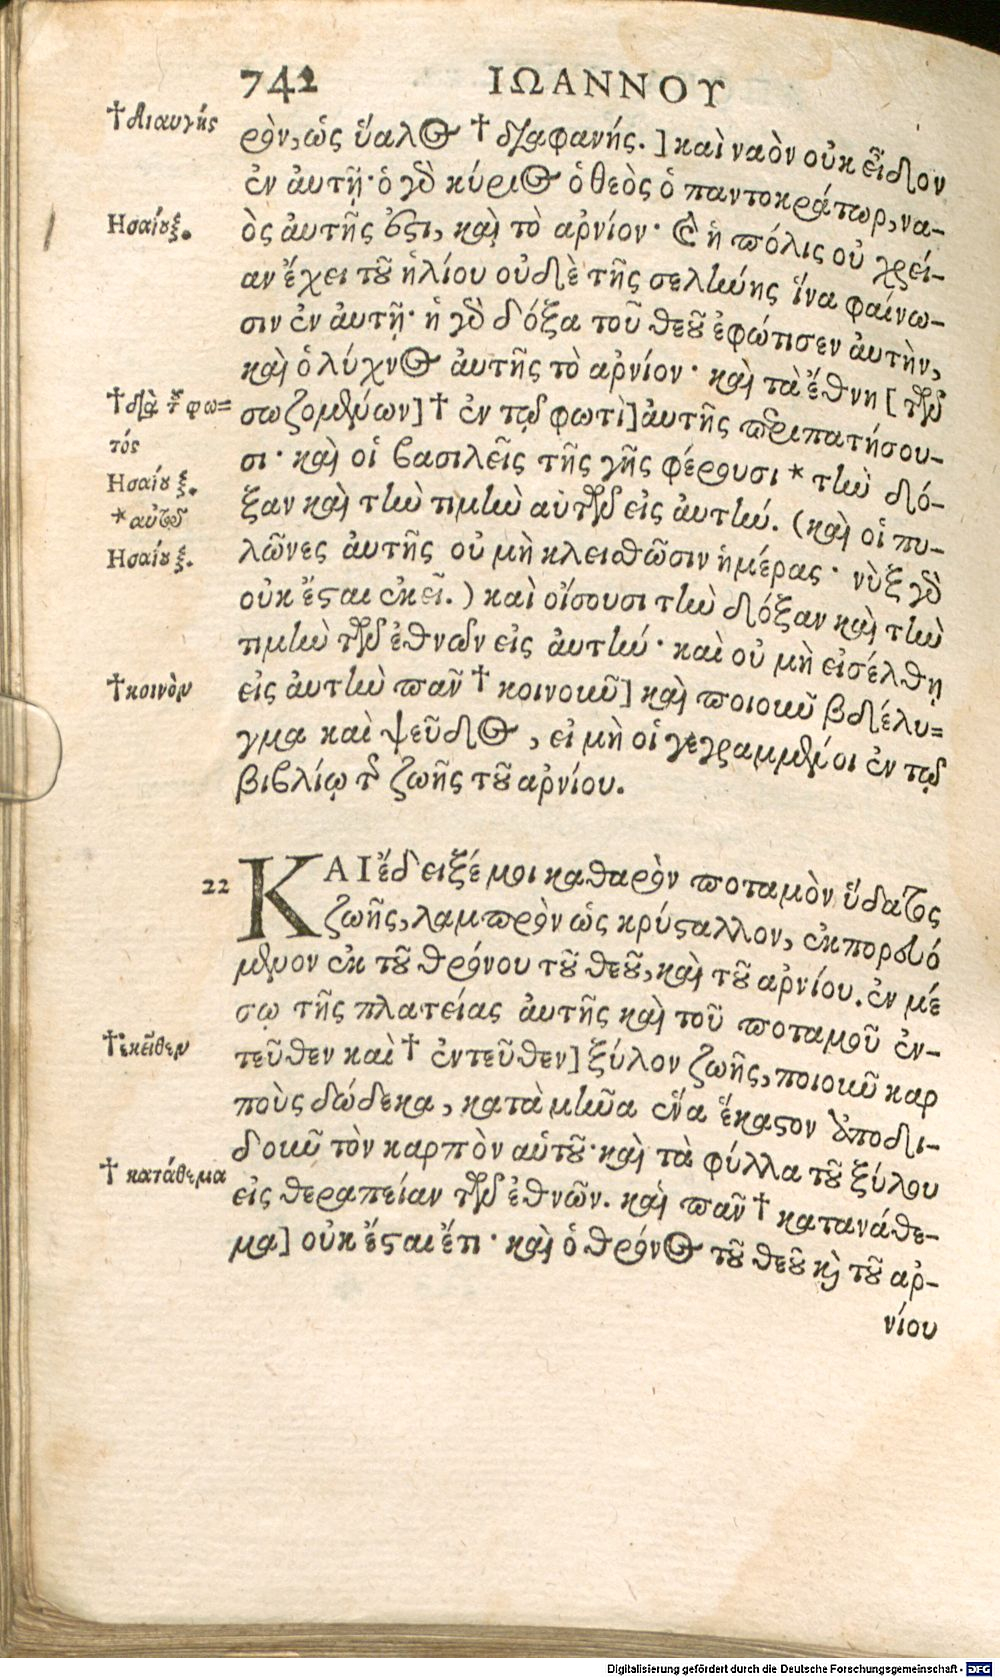 742 ΙΩΑΝΝΟΥ
†διαυγής
ρὸν, ὡς ὕαλος † διαφανής.] καὶ ναὸν οὐκ εἶδον
ἐν ἀυτῇ· ὁ γὸ κύριος ὁ θεὸς ὁ παντοκράτωρ, να-
Ησαίου ξ.
ὸς ἀυτῆς ὅστι, καὶ τὸ ἀρνίον· Καὶ ἡ πόλις οὐ χρεί-
αν ἔχει τοῦ ἡλίου οὐδὲ τῆς σελήνης ἵνα φαίνω-
σιν ἐν ἀυτῇ· ἡ γὸ δόξα τοῦ θεοῦ ἐφώτισεν ἀυτὴν,
καὶ ὁ λύχνος ἀυτῆς τὸ ἀρνίον· καὶ τὰ ἔθνη [τῶν
†διὰ τῦ φω=
τός
σωζομένων] † ἐν τῷ φωτὶ] ἀυτῆς περιπατήσου-
Ησαίου ξ.
σι· καὶ οἱ βασιλεῖς τῆς γῆς φέρουσι * τὴν δό-
*αὐτῷ
ξαν καὶ τὴν τιμὴν αὐτῶν εἰς ἀυτήν. (καὶ οἱ πυ-
Ησαίου ξ.
λῶνες ἀυτῆς οὐ μὴ κλειθῶσιν ἡμέρας· νὺξ γὸ
οὐκ ἔσται ἐκεῖ.) καὶ οἴσουσι τὴν δόξαν καὶ τὴν
τιμὴν τῶν ἐθνῶν εἰς ἀυτήν· καὶ οὐ μὴ εἰσέλθῃ
†κοινὸν
εἰς ἀυτὴν πᾶν † κοινοῦν] καὶ ποιοῦν βδέλυ=
γμα καὶ ψεῦδος, εἰ μὴ οἱ γεγραμμένοι ἐν τῷ
βιβλίῳ τῆς ζωῆς τοῦ ἀρνίου.
22
ΚΑΙ ἔδειξέ μοι καθαρὸν ποταμὸν ὕδατος
ζωῆς, λαμπρὸν ὡς κρύσταλλον, ἐκπορευό
μενον ἐκ τοῦ θρόνου τοῦ θεοῦ, καὶ τοῦ ἀρνίου. ἐν μέ
σῳ τῆς πλατείας ἀυτῆς καὶ τοῦ ποταμοῦ ἐν-
†ἐκεῖθεν
τεῦθεν καὶ † ἐντεῦθεν] ξύλον ζωῆς, ποιοῦν καρ
ποὺς δώδεκα, κατὰ μῆνα ἕνα ἕκαστον ἀποδι-
δοῦν τὸν καρπὸν αὑτοῦ· καὶ τὰ φύλλα τοῦ ξύλου
† κατάθεμα
εἰς θεραπείαν τῶν ἐθνῶν. καὶ πᾶν † κατανάθε-
μα] οὐκ ἔσται ἔτι· καὶ ὁ θρόνος τοῦ θεοῦ καὶ τοῦ ἀρ-
νίου
Digitalisierung gefördert durch die Deutsche Forschungsgemeinschaft - DFG